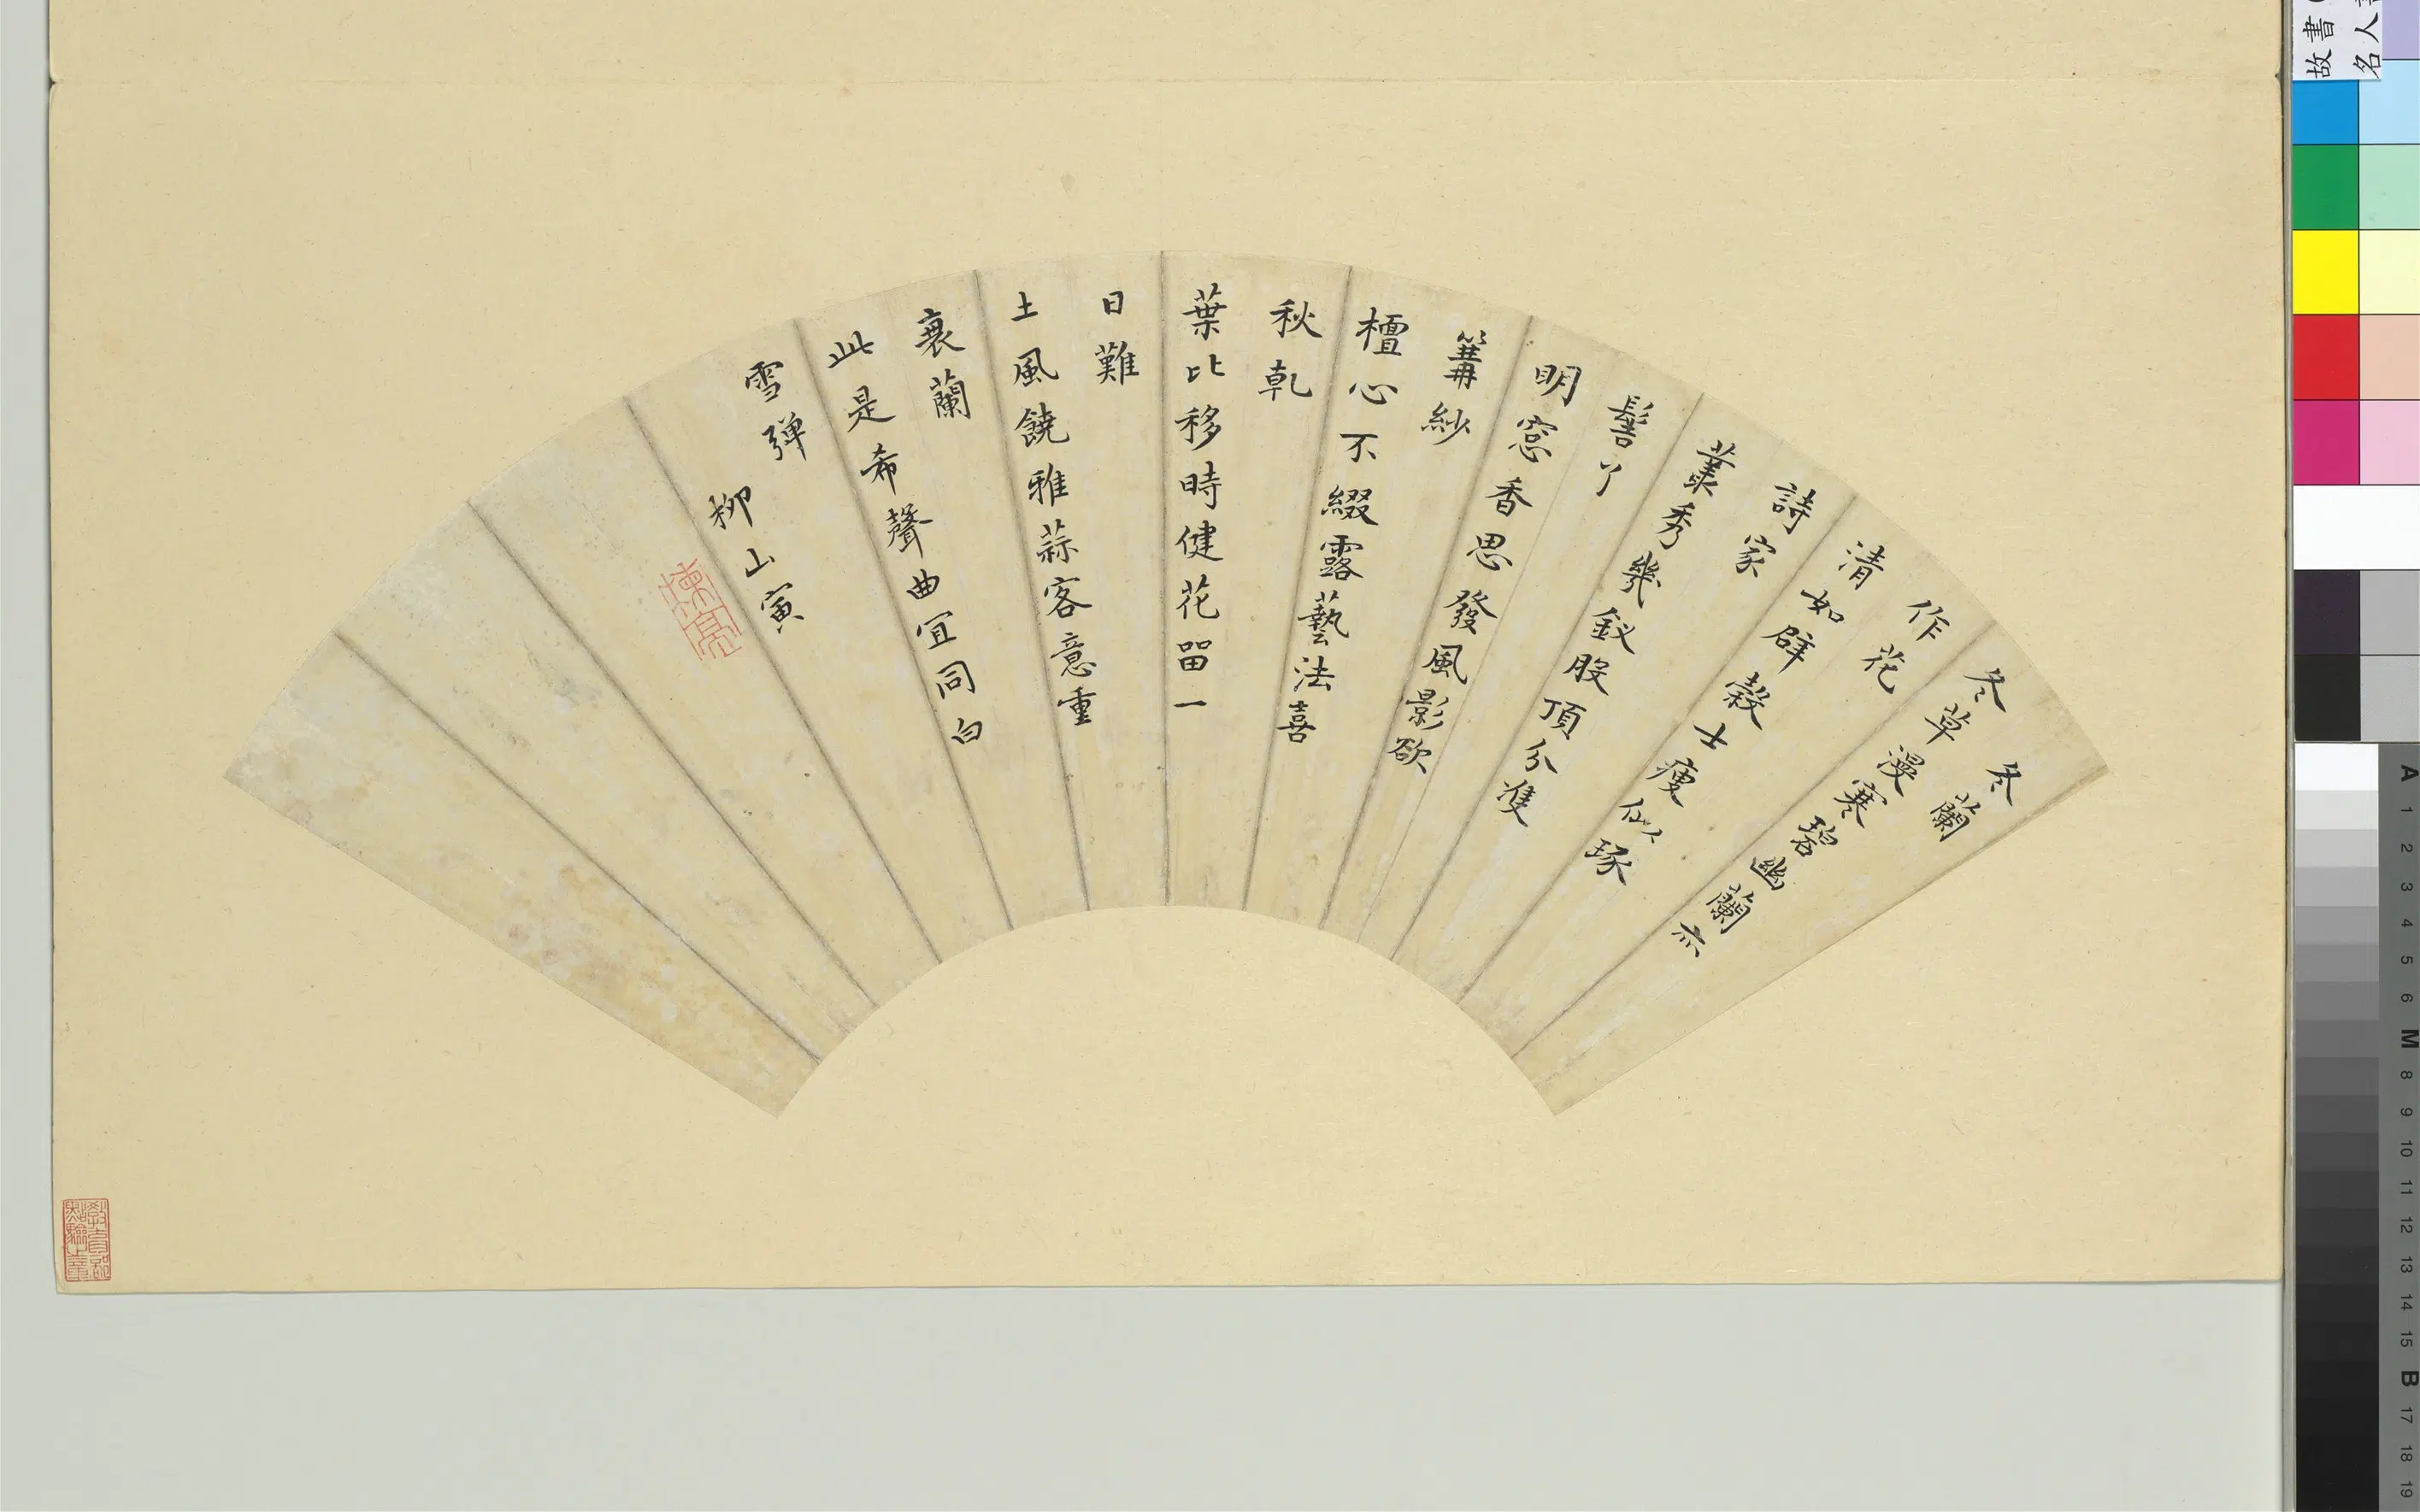 冬蘭
冬草漫寒碧幽蘭亦
作花
清如辟穀士瘦似琢
詩家
叢秀幾釵股頂分雙
髻丫
明窓香思發風影欲
篝紗
檀心不綴露藝法喜
秋乾
葉比移時健花畱一
日難
土風饒雅蒜客意重
衰蘭
此是希聲曲宜同白
雪彈
柳山寅
故書
名人
A
1
2
3
4
5
6
M
8
9
10
11
12
13
14
15
B
17
18
19